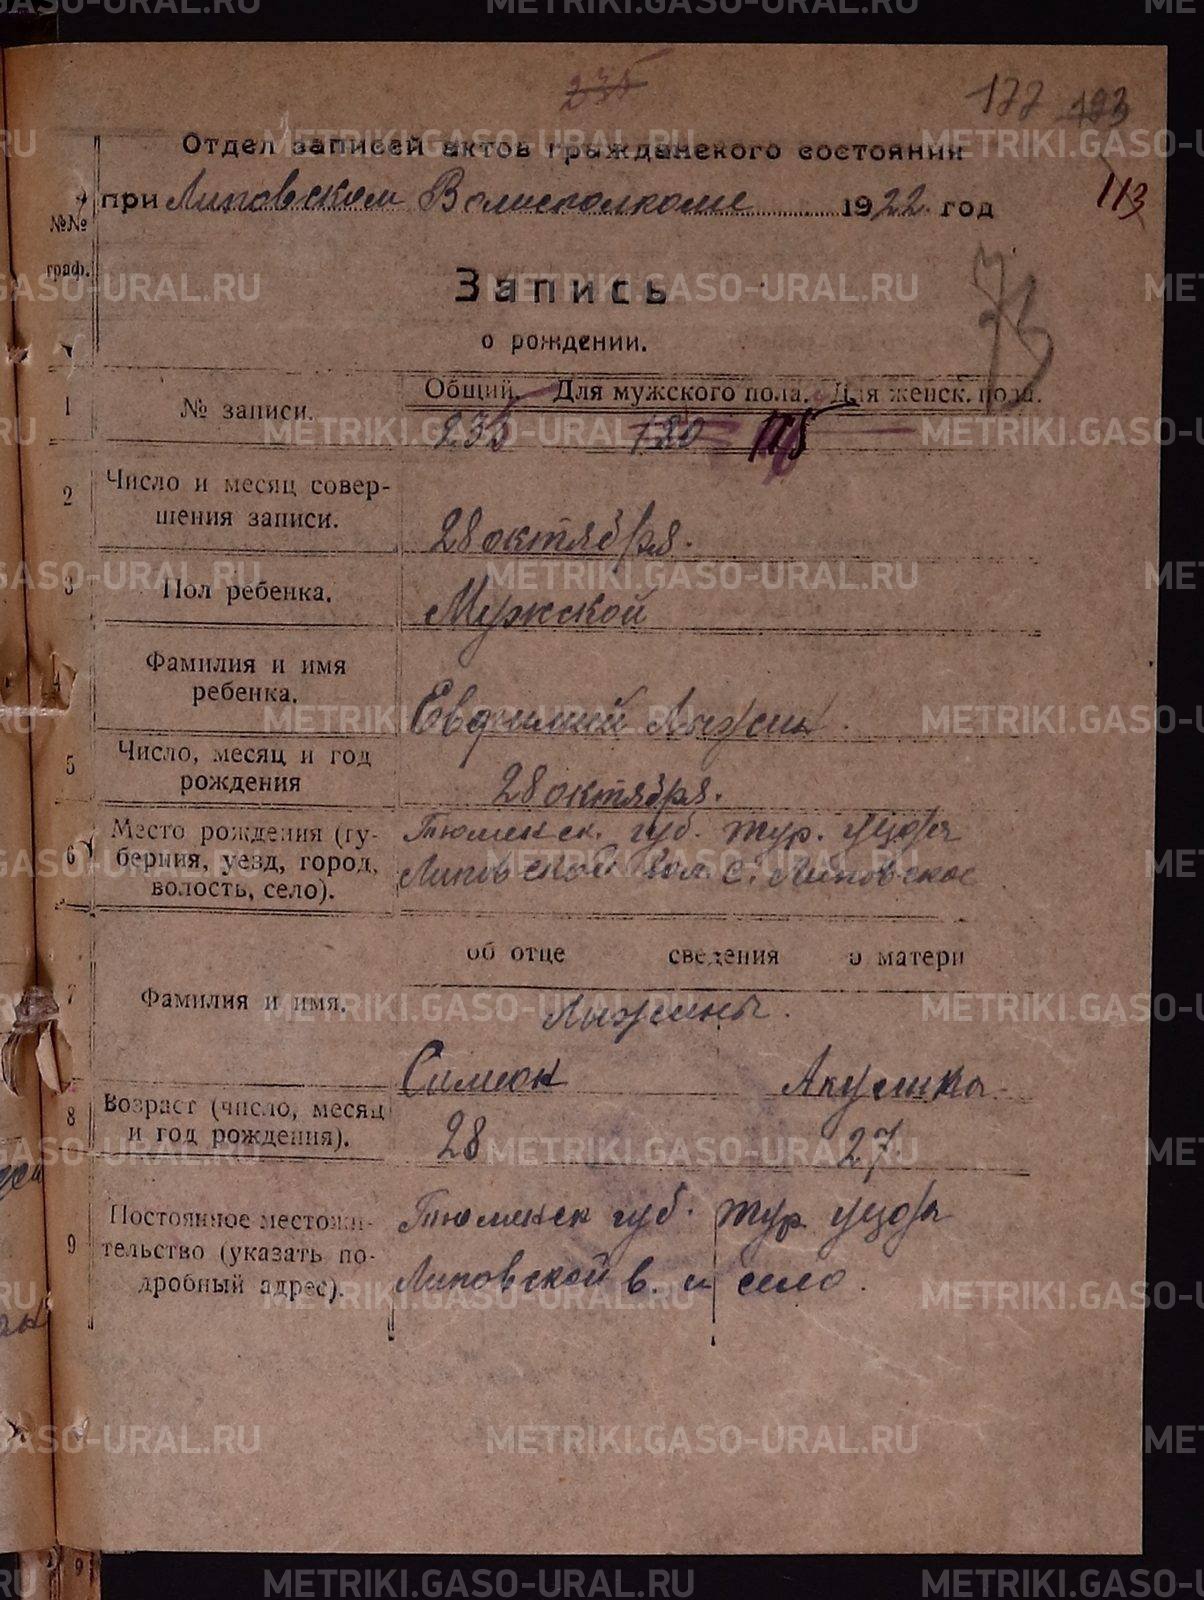 235
177 193
113
Отдел записей актов гражданского состояния
при Липовском Волисполкоме 1922 год
№№
граф.
73
Запись
о рождении.
Общий. Для мужского пола. Для женск. пола.
1 № записи. 235 120 115
2 Число и месяц совер-
шения записи. 28 октября.
3 Пол ребенка. Мужской
4 Фамилия и имя
ребенка. Евфимий Лыжин.
5 Число, месяц и год
рождения 28 октября.
6 Место рождения (гу- Тюменск. губ. Тур. уезда
берния, уезд, город, Липовской вол. с. Липовское
волость, село).
об отце сведения о матери
7 Фамилия и имя. Лыжины.
Симеон Акулина
8 Возраст (число, месяц
и год рождения). 28 27
9 Постоянное местожи- Тюменск губ. Тур. уезда
тельство (указать по-
дробный адрес). Липовской в. и село.
METRIKI.GASO-URAL.RU